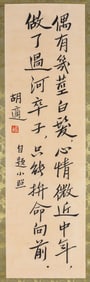 偶有幾莖白髮，心情微近中年，
做了過河卒子，只能拚命向前。
胡適
自題小照